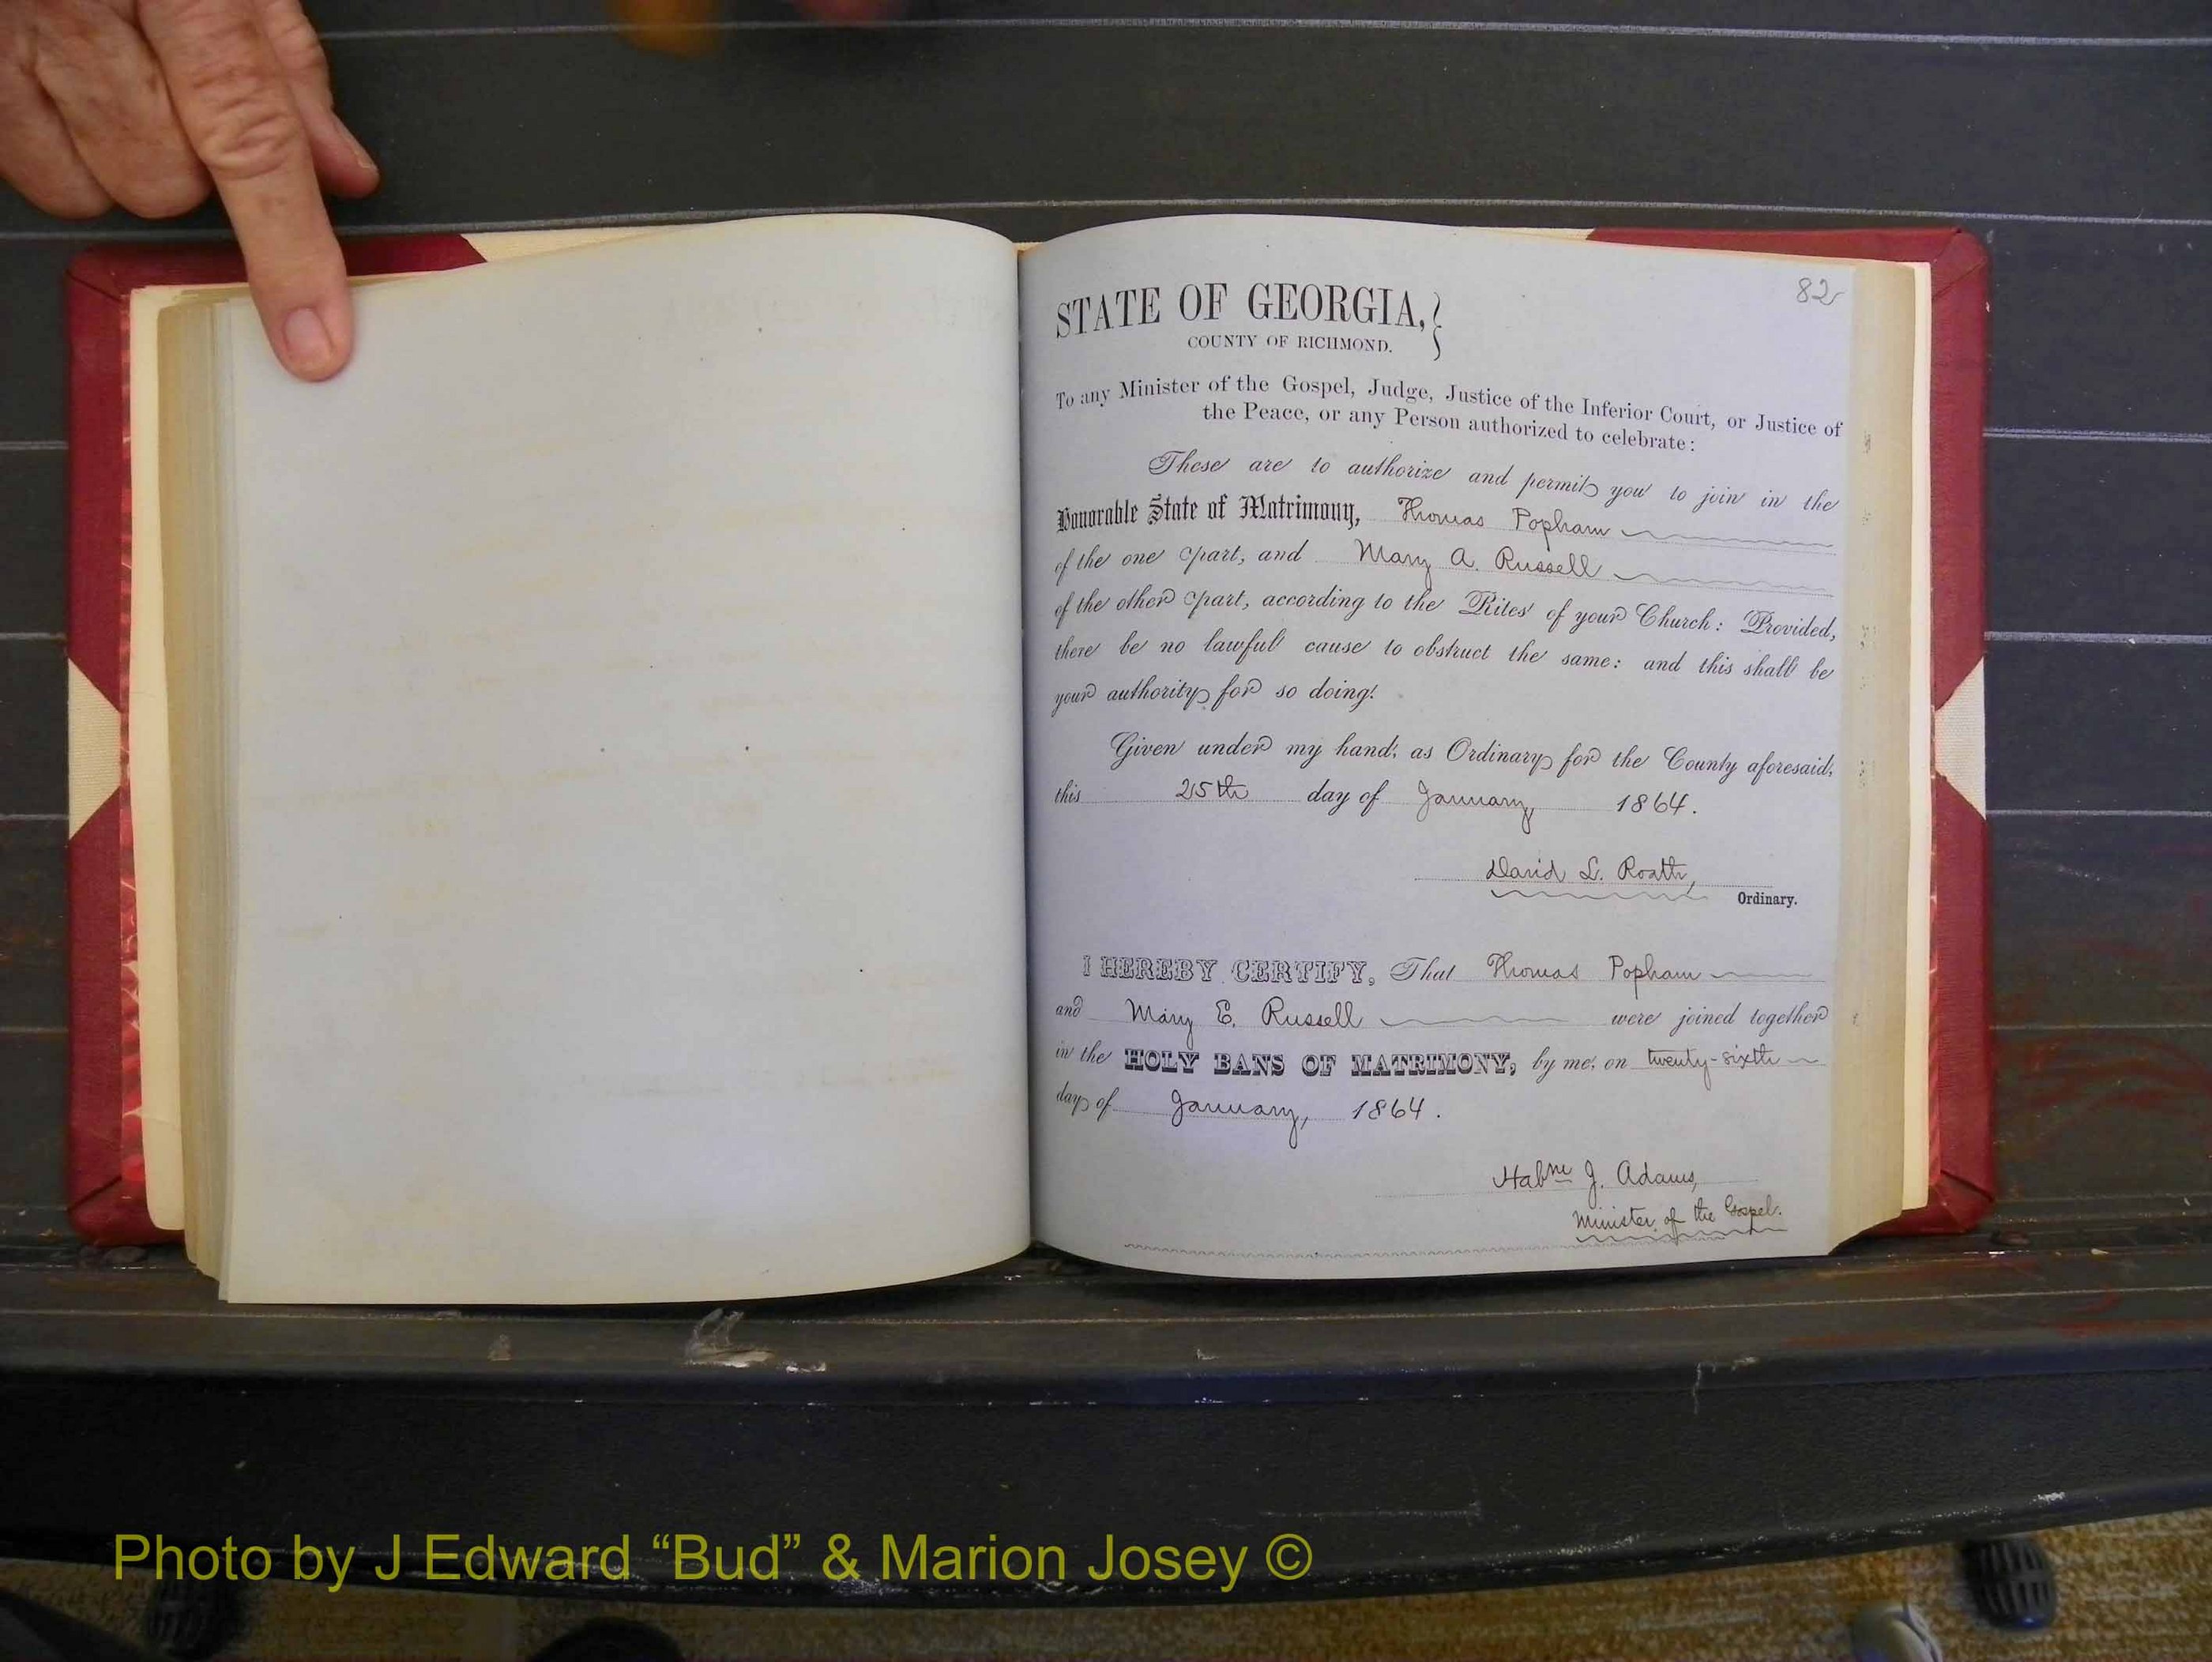 82
STATE OF GEORGIA,
COUNTY OF RICHMOND.
To any Minister of the Gospel, Judge, Justice of the Inferior Court, or Justice of
the Peace, or any Person authorized to celebrate:
These are to authorize and permit you to join in the
Honorable State of Matrimony, Thomas Popham
of the one part, and Mary A. Russell
of the other part, according to the Rites of your Church: Provided,
there be no lawful cause to obstruct the same: and this shall be
your authority for so doing.
Given under my hand, as Ordinary for the County aforesaid,
this 25th day of January, 1864.
David L. Roath,
Ordinary.
I HEREBY CERTIFY, That Thomas Popham
and Mary E. Russell were joined together
in the HOLY BANS OF MATRIMONY, by me, on twenty-sixth
day of January, 1864.
Habm J. Adams,
Minister of the Gospel.
Photo by J Edward “Bud” & Marion Josey ©